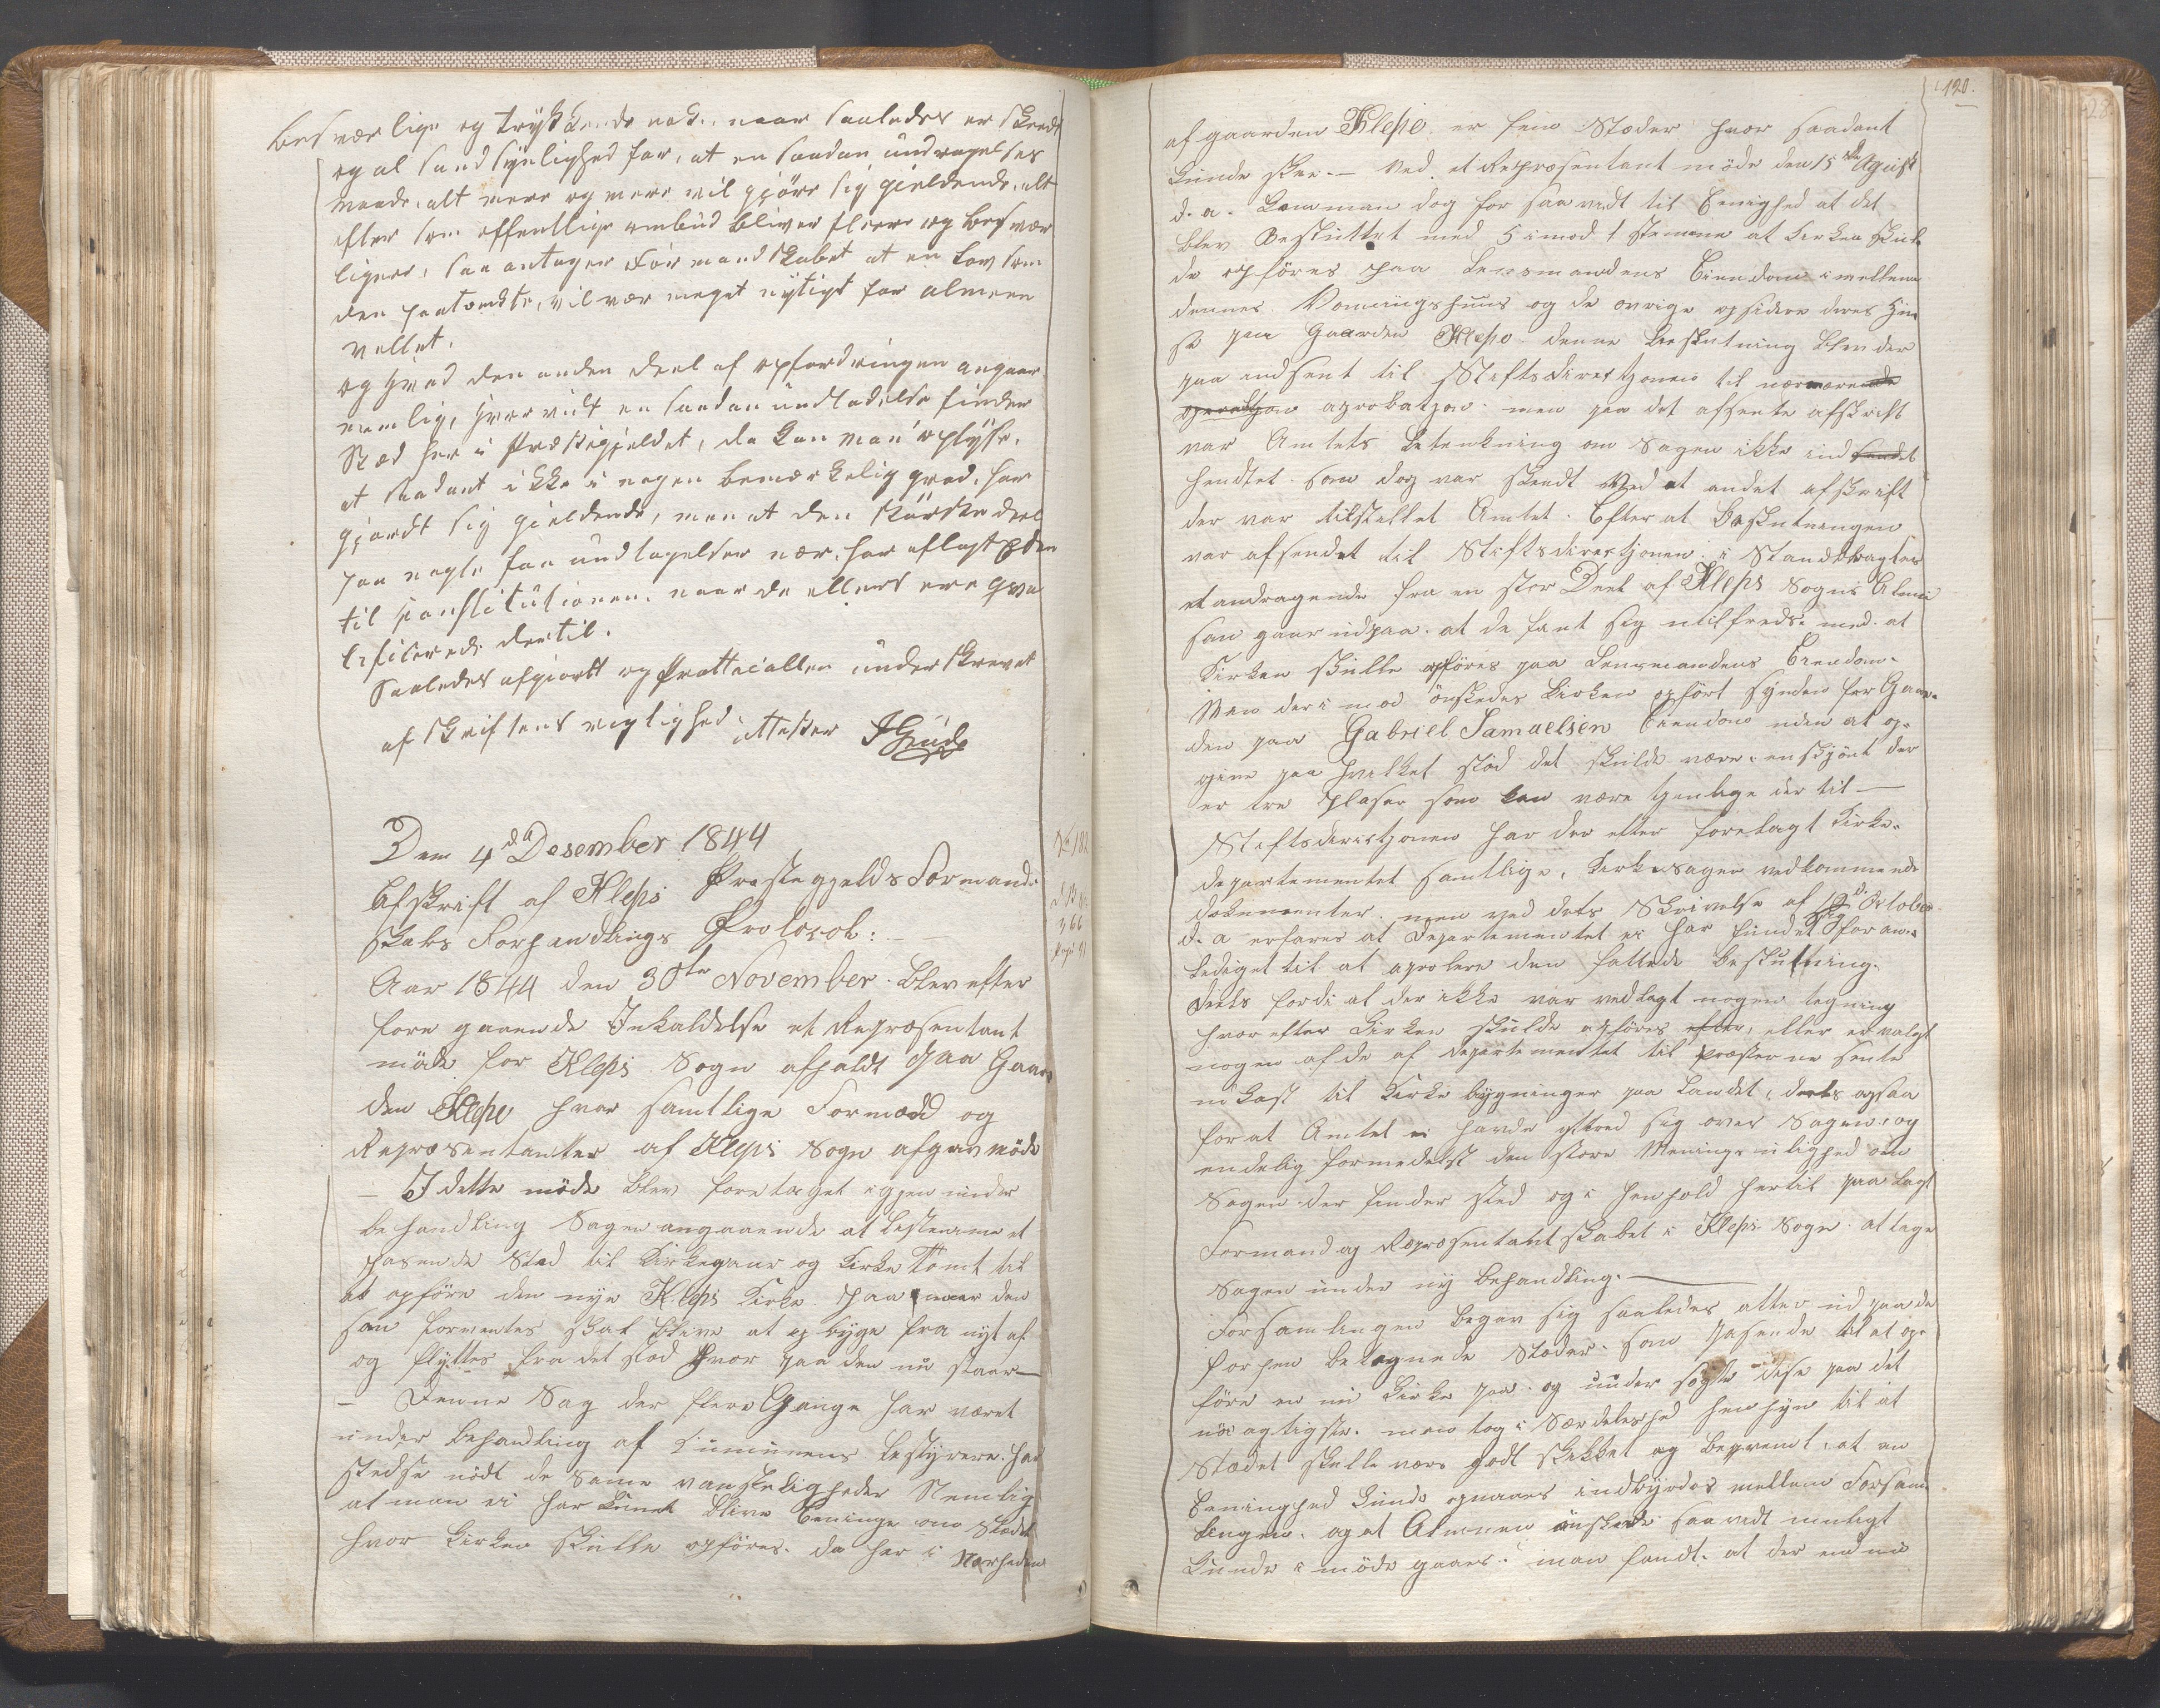 besværlige og trykkende nok. naar saaledes er skeedt
og al sandsynlighed for, at en saadan undragelses
maade, alt mere og mere vil gjöre sig gieldende, alt
efter som offentlige ombud bliver fleere og besvær
ligere, saa antager Formandskabet at en Lov som
den paatænkte, vil vær meget nyttigt for almeen
vellet.
og hvad den anden Deel af opfordringen angaar
nemlig, hvorvidt en saadan undladelse finder
Sted her i Præstegjeldet, da kan man oplyse,
at saadant ikke i nogen bemærkelig grad, har
gjordt sig gieldende, men at den störste deel
paa nogle faa undtagelser nær, har aflagt Eden
til Constitutionen. naar de ellers ere qva
lificerede dertil.
Saaledes afgiordt og Prottecallen underskrevet
afskriftens rigtighed attester
Den 4de Desember 1844
Afskrift af Kleps Præstegjelds Formand
skabs Forhandlings Protocol:
Aar 1844 den 30te November. blev efter
fore gaaende Inkaldelse et Repræsentant
möde for Kleps Sogn afholdt paa Gaar
den Kleppe hvor samtlige Formænd og
Repræsentanter af Kleps Sogn afgav möde
— I dette möde blev foretaget iggjen under
behandling Sagen angaaende at bestemme et
pasende Sted til Kirkegaar og Kirke Tomt til
at opföre den nye Kleps Kirke paa naar den
som forventes skal blive at opbyge fra nyt af
og flyttes fra det sted hvor paa den nu staar—
— Denne Sag der flere Gange har været
under behandling af Cumunens bestyrere. har
stedse nödt de same vanskeligheder Nemlig
at man ei har kunet blive Eeninge om stedet
hvor Kirken skulle opföres. da her i Nærheden
120.
af gaarden Kleppe er fem Steder hvor saadant
kunde skee.— Ved et Repræsentant möde den 15de Agust
d. a. kom man dog for saa vidt til Eenighed at det
blev Besluttet med 5 imod 1 stemme at Kirken skul
de opföres paa Lensmandens Eiendom imellem
dennes Vaaningshuus og de övrige opsidere deres Huu
se paa Gaarden Kleppe denne Beslutning blev der
paa indsent til Stiftsdirectjonen til nærmerende
aprobatjon. men paa det afsente afskrift
var Amtets betenkning om Sagen ikke ind sendet
hendtet. som dog var skeedt Ved et andet afskrift
der var tilstellet Amtet. Efter at Beslutningen
var afsendet til Stiftsdirectjonen
et andragende fra en stor Deel af Kleps Sogns Almue
som gaar ud paa. at de fant sig utilfredse med at
Kirken skulle opföres paa Lensmandens Eiendom.
Men derimod önskedes Kirken opfört synden for Gaar
den paa Gabriel Samuelsen Eiendom uden at op
give paa hvilket sted det skulde være. enskjönt der
er tre plaser som kan være tjenlige der til —
Stiftsdirectjonen har der efter forelagt Kirke
departementet samtlige, Kirkesagen vedkommende
dokumenter. men ved dets Skrivelse af October
d. a erfares at Departementet ei har fundet sig foran
lediget til at aprobere den fattede Beslutning.
deels fordi at der ikke var vedlagt nogen tegning
hvorefter Kirken skulde opföres efter, eller er valgt
nogen af de af departementet til præsterne sente
udkast til Kirke bygninger paa Landet, deels ogsaa
for at Amtet ei havde yttred sig over Sagen. og
endelig formedelst den store Menings ulighed om
Sagen der finder sted og i henhold hertil paa lagt
Formand og Repræsentantskabet i Kleps Sogn at tage
Sagen under ny behandling.—
Forsamlingen begav sig saaledes atter ud paa de
forhen betegnede Steder. som pasende til at op
före en ni Kirke paa. og under sögte dise paa det
nöiagtigste. men tog i Særdeleshed hensyn til at
Stædet skulle være godt skikket og beqvemt. at en
Eeninghed kunde opnaaes indbyrdes mellem Forsam
lingen. og at Almuen önskede saa vidt muligt
kunde i möde gaaes. man fandt. at der endnu